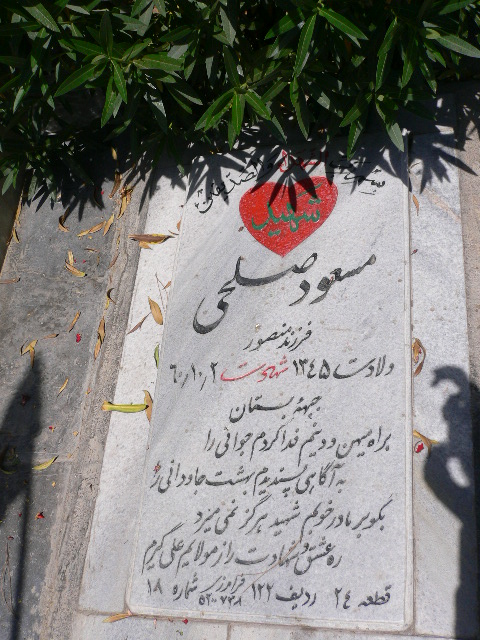 شهید
مسعود صلحی
فرزند منصور
ولادت ۱۳۴۵ شهادت ۶۰/۱۰/۲
جبهه بستان
براه میهن و دینم فدا کردم جوانی را
به آگاهی پسندیدم بهشت جاودانی را
بگو بر مادر خوبم شهید هرگز نمی میرد
ره عشق و شهادت را ز مولایم علی گیرم
قطعه ۲۴ ردیف ۱۲۲ شماره ۱۸